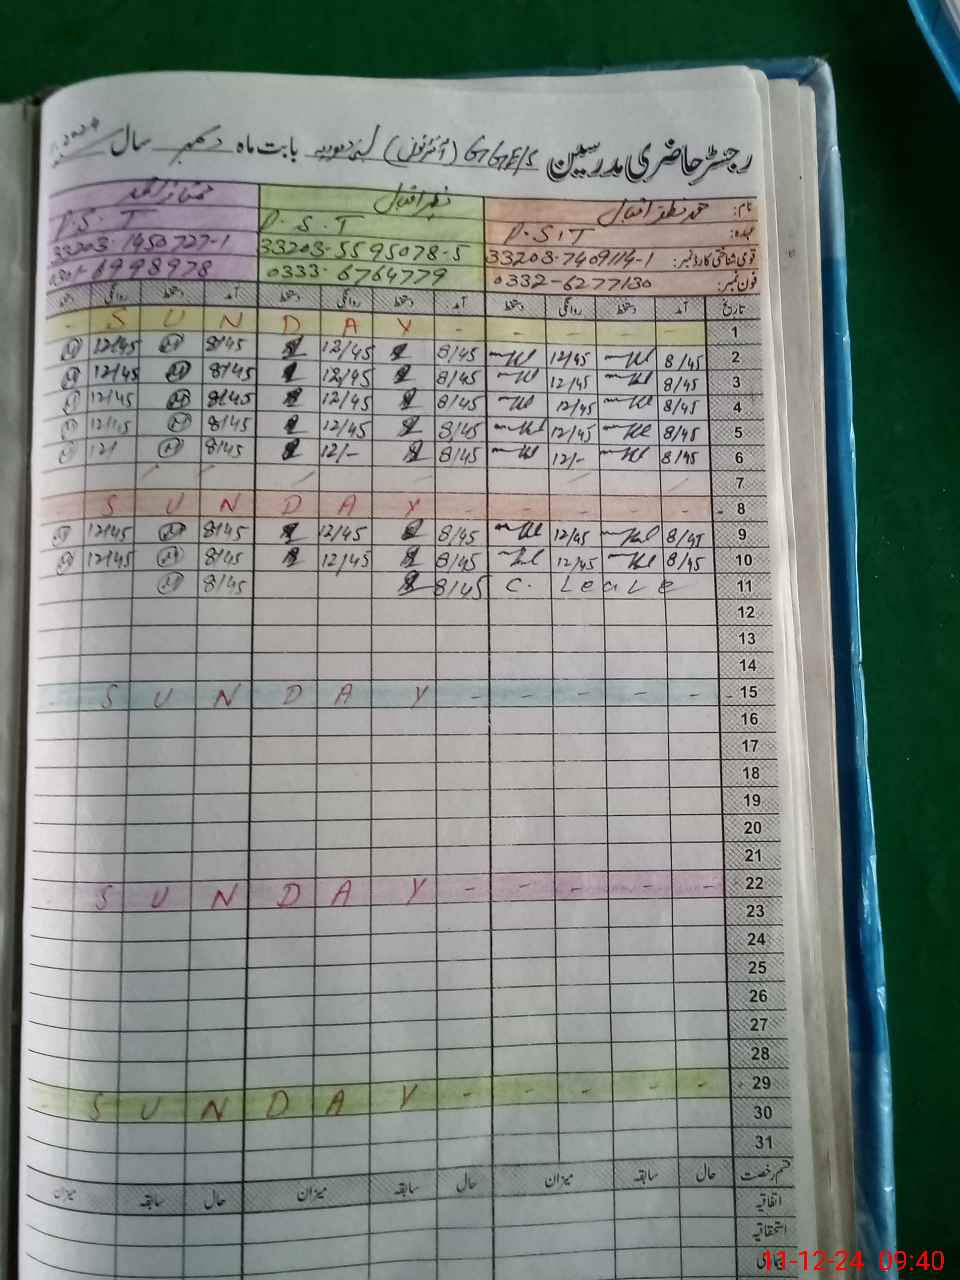 رجسٹر حاضری مدرسین G.G.E/S بابت ماہ دسمبر سال
نام: محمد نظر اقبال
عہدہ: P.S.T P.S.T P.S.T
قومی شناختی کارڈ نمبر: 33203-7409114-1 33203-5595078-5 33203-1450727-1
فون نمبر: 0332-6277130 0333-6764779
تاریخ آمد دستخط روانگی دستخط آمد دستخط روانگی دستخط آمد دستخط روانگی
1 S U N D A Y
2 8/45 12/45 8/45 12/45 8/45 12/45
3 8/45 12/45 8/45 12/45 8/45 12/45
4 8/45 12/45 8/45 12/45 8/45 12/45
5 8/45 12/45 8/45 12/45 8/45 12/45
6 8/45 12/- 8/45 12/- 8/45 12/
7
8 S U N D A Y
9 8/45 12/45 8/45 12/45 8/45 12/45
10 8/45 12/45 8/45 12/45 8/45 12/45
11 C. Leave 8/45 8/45
12
13
14
15 S U N D A Y
16
17
18
19
20
21
22 S U N D A Y
23
24
25
26
27
28
29 S U N D A Y
30
31
قسم رخصت حال سابقہ میزان حال سابقہ میزان حال سابقہ میزان
اتفاقیہ
استحقاقیہ
11-12-24 09:40